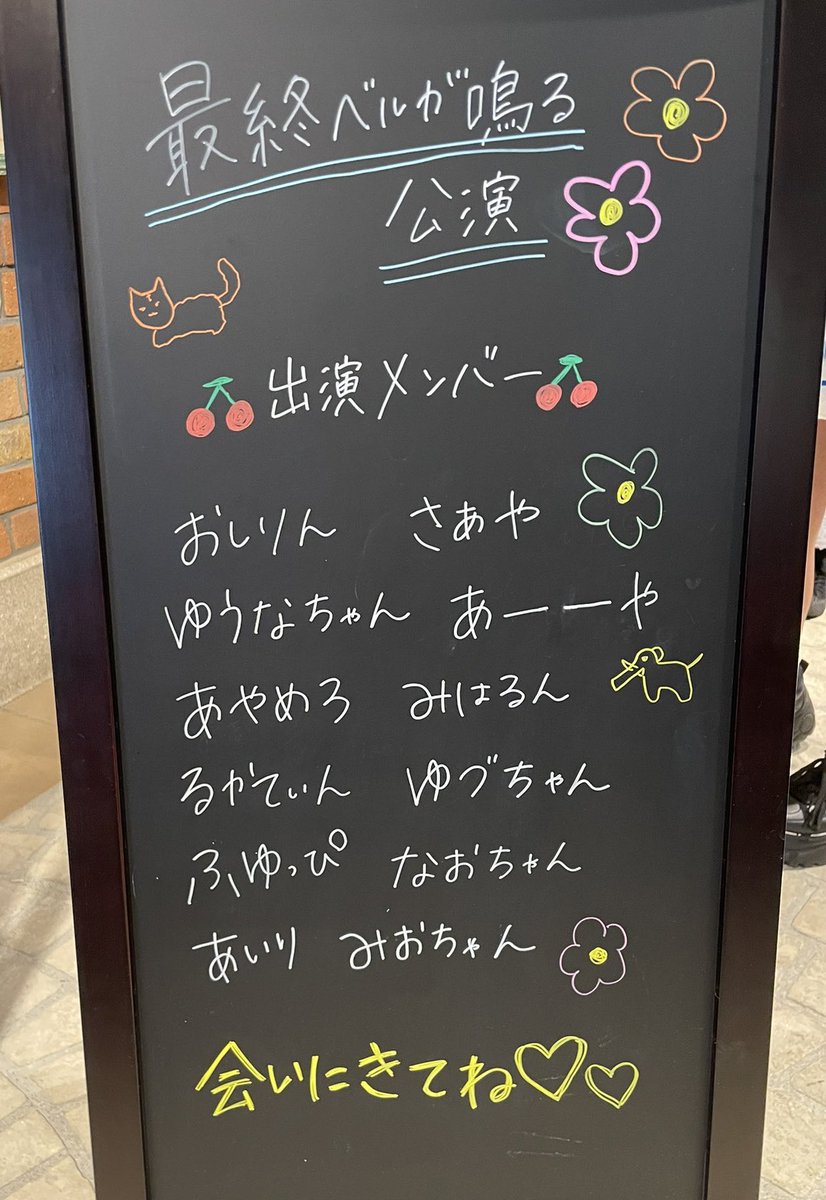 最終ベルが鳴る
公演
出演メンバー
おしりん さぁや
ゆうなちゃん あーーや
あやめろ みはるん
るかてぃん ゆづちゃん
ふゆっぴ なおちゃん
あいり みおちゃん
会いにきてね♡♡